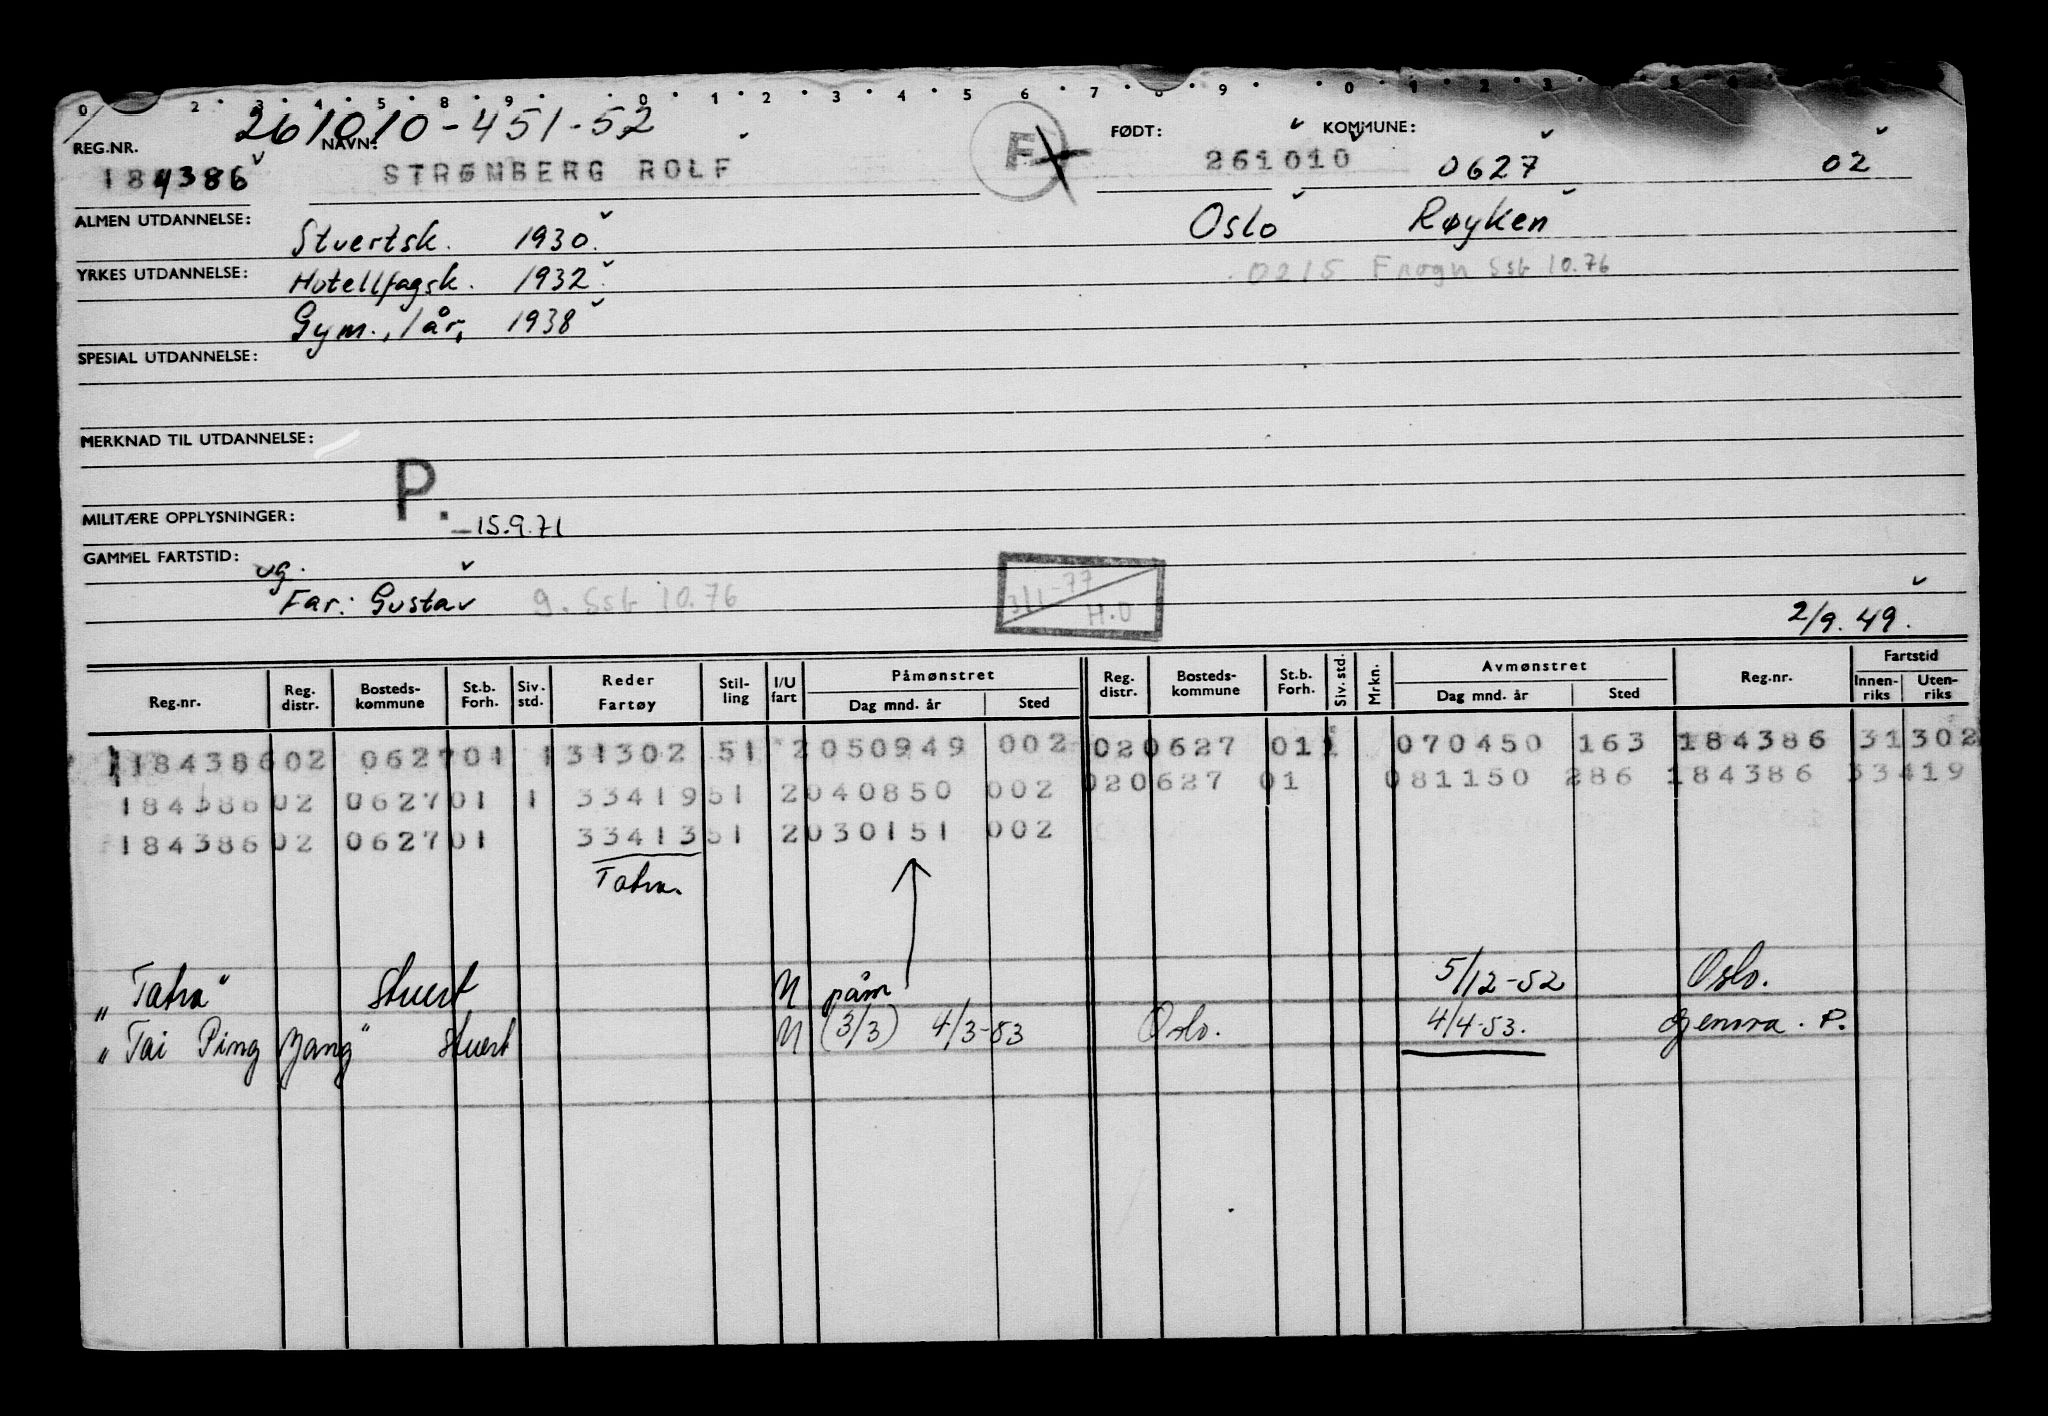 0 2 3 4 5 8 9 0 1 2 3 4 5 6 7 8 9 0 1 2 3
261010-451-52
REG.NR. NAVN: F FØDT: KOMMUNE:
184386 STRØMBERG ROLF 261010 0627 02
ALMEN UTDANNELSE: Stuertsk. 1930. Oslo Røyken
YRKES UTDANNELSE: Hotellfagsk. 1932. 0215 Frogn Sst 10.76
Gym., 1 år, 1938
SPESIAL UTDANNELSE:
MERKNAD TIL UTDANNELSE:
P.
MILITÆRE OPPLYSNINGER: -15.9.71
GAMMEL FARTSTID: ug.
Far: Gustav g. Sst 10.76 3/1-77 H.O 2/9.49.
Reg.nr. Reg. distr. Bosteds-kommune St.b. Forh. Siv. std. Reder Fartøy Stil-ling I/U fart Påmønstret Dag mnd. år Sted Reg. distr. Bosteds-kommune St.b. Forh. Siv. std. Mrkn. Avmønstret Dag mnd. år Sted Reg.nr. Fartstid Innen-riks Uten-riks
184386 02 0627 01 1 31302 51 2 050949 002 02 0627 01 1 070450 163 184386 31302
184386 02 0627 01 1 33419 51 2 040850 002 02 0627 01 081150 286 184386 33419
184386 02 0627 01 33413 51 2 030151 002
Tatra.
"Tatra" Stuert U påm 5/12-52 Oslo.
"Tai Ping Yang" Stuert U (3/3) 4/3-53 Oslo. 4/4-53. Genova. P.